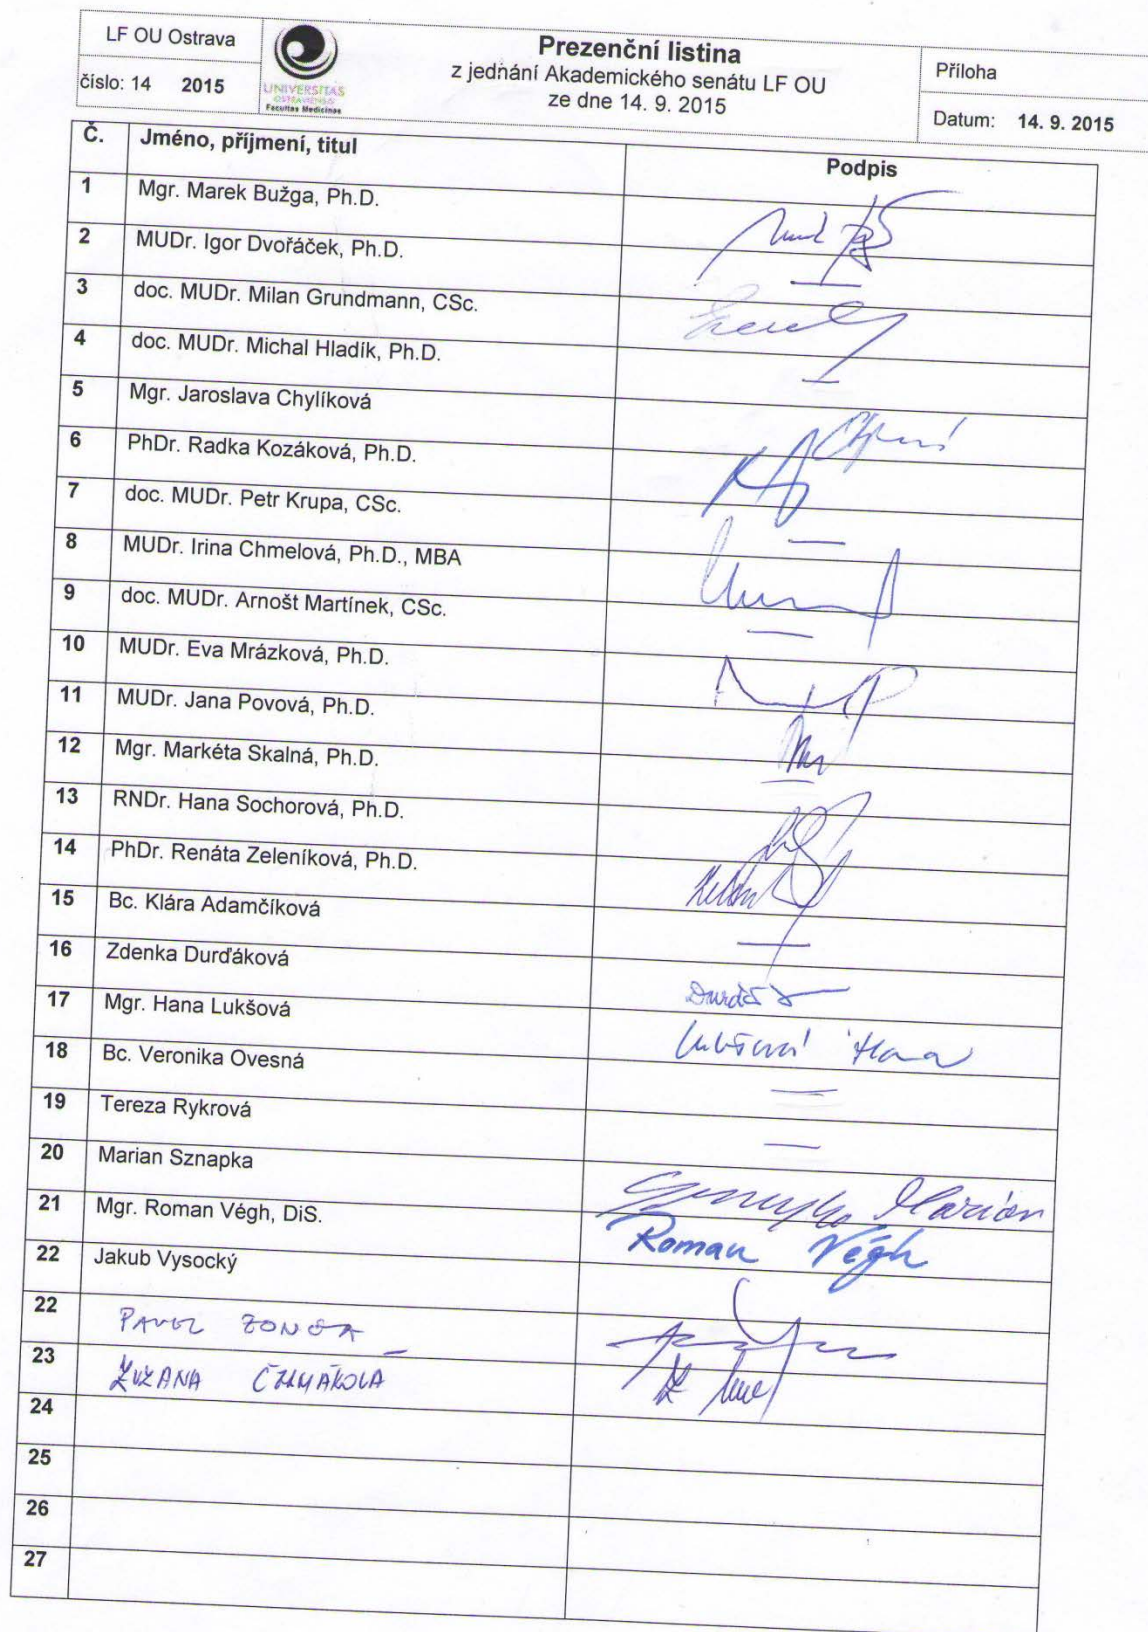 LF OU Ostrava
číslo: 14 2015
UNIVERSITAS
OSTRAVIENSIS
Facultas Medicinae
Prezenční listina
z jednání Akademického senátu LF OU
ze dne 14. 9. 2015
Příloha
Datum: 14. 9. 2015
Č. Jméno, příjmení, titul Podpis
1 Mgr. Marek Bužga, Ph.D.
2 MUDr. Igor Dvořáček, Ph.D. —
3 doc. MUDr. Milan Grundmann, CSc.
4 doc. MUDr. Michal Hladík, Ph.D. —
5 Mgr. Jaroslava Chylíková
6 PhDr. Radka Kozáková, Ph.D.
7 doc. MUDr. Petr Krupa, CSc. —
8 MUDr. Irina Chmelová, Ph.D., MBA
9 doc. MUDr. Arnošt Martínek, CSc. —
10 MUDr. Eva Mrázková, Ph.D.
11 MUDr. Jana Povová, Ph.D.
12 Mgr. Markéta Skalná, Ph.D. —
13 RNDr. Hana Sochorová, Ph.D.
14 PhDr. Renáta Zeleníková, Ph.D.
15 Bc. Klára Adamčíková —
16 Zdenka Durďáková
17 Mgr. Hana Lukšová Lukšová Hana
18 Bc. Veronika Ovesná —
19 Tereza Rykrová —
20 Marian Sznapka Sznapka Marian
21 Mgr. Roman Végh, DiS. Roman Végh
22 Jakub Vysocký
22 PAVOL ZONČA
23 ZUZANA ČERMÁKOVÁ
24
25
26
27